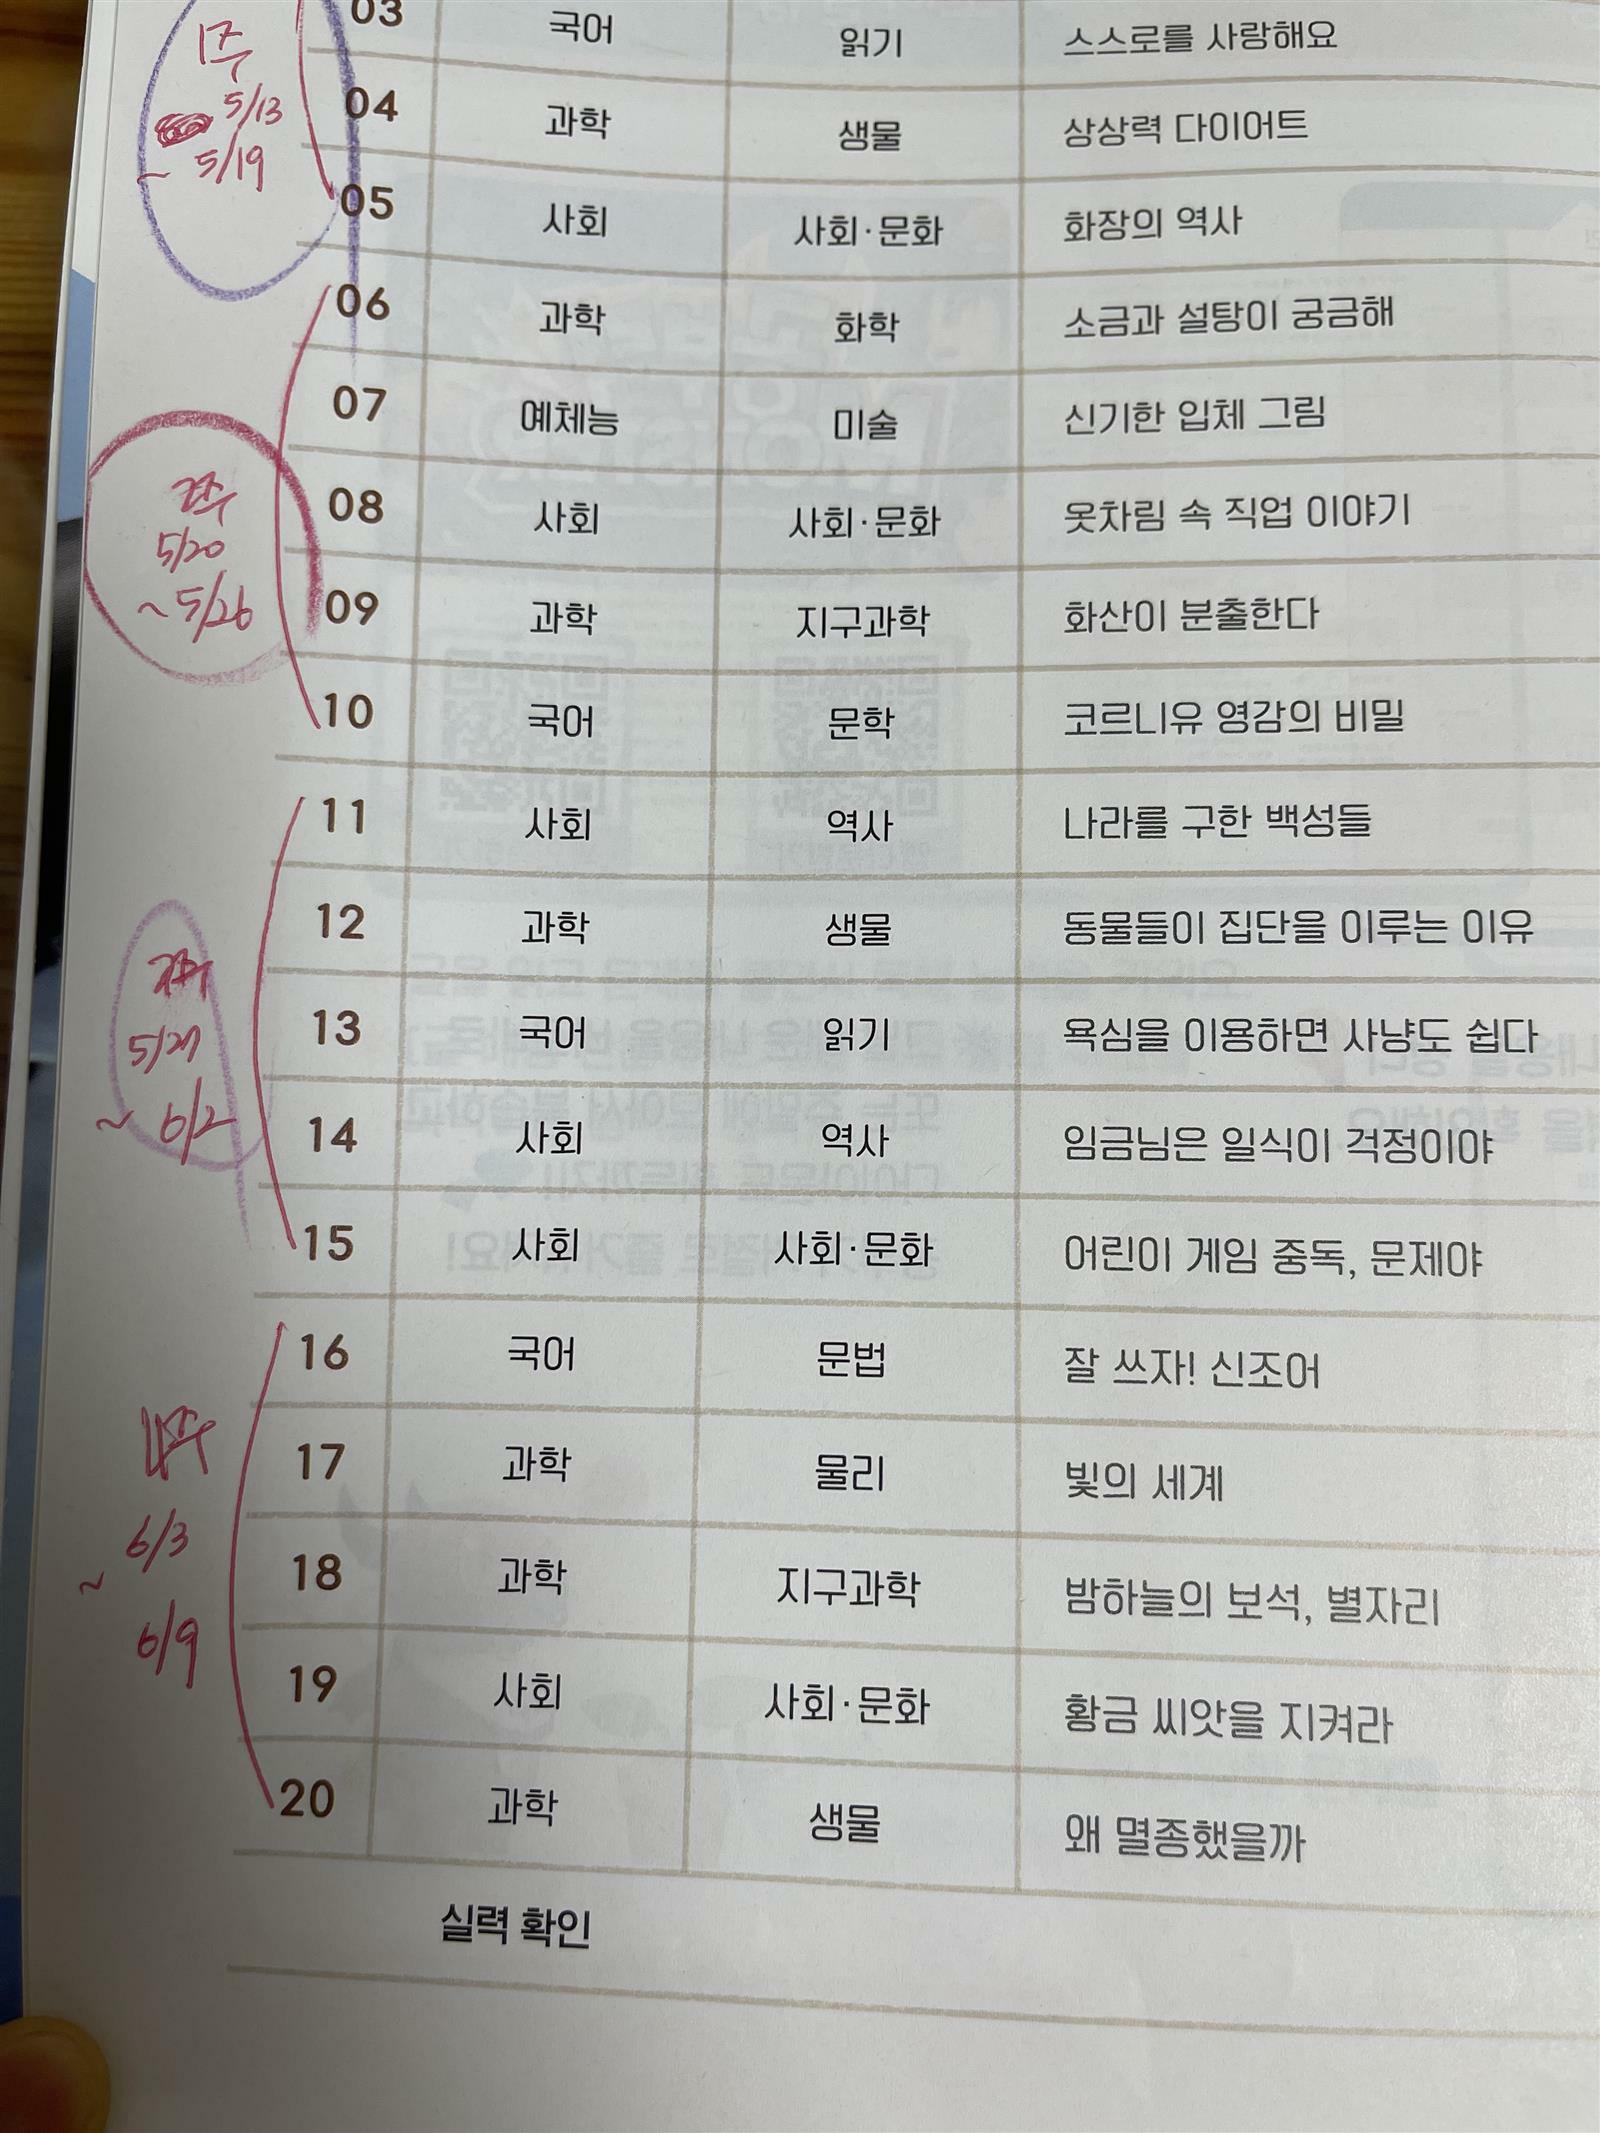 03 국어 읽기 스스로를 사랑해요
04 과학 생물 상상력 다이어트
05 사회 사회·문화 화장의 역사
1주
5/13
~ 5/19
06 과학 화학 소금과 설탕이 궁금해
07 예체능 미술 신기한 입체 그림
08 사회 사회·문화 옷차림 속 직업 이야기
09 과학 지구과학 화산이 분출한다
10 국어 문학 코르니유 영감의 비밀
2주
5/20
~ 5/26
11 사회 역사 나라를 구한 백성들
12 과학 생물 동물들이 집단을 이루는 이유
13 국어 읽기 욕심을 이용하면 사냥도 쉽다
14 사회 역사 임금님은 일식이 걱정이야
15 사회 사회·문화 어린이 게임 중독, 문제야
5/27
~ 6/2
16 국어 문법 잘 쓰자! 신조어
17 과학 물리 빛의 세계
18 과학 지구과학 밤하늘의 보석, 별자리
19 사회 사회·문화 황금 씨앗을 지켜라
20 과학 생물 왜 멸종했을까
4주
6/3
~
6/9
실력 확인